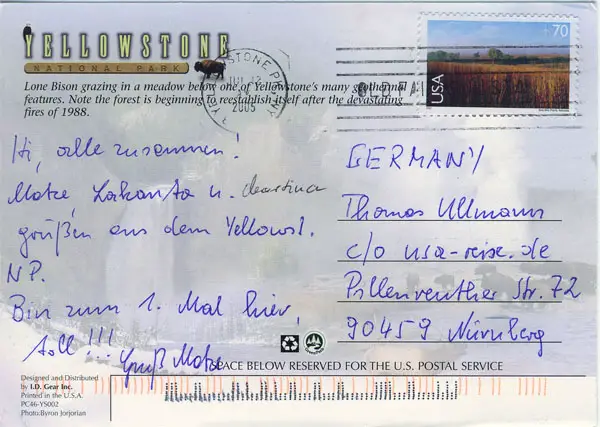 YELLOWSTONE
NATIONAL PARK
Lone Bison grazing in a meadow below one of Yellowstone's many geothermal
features. Note the forest is beginning to reestablish itself after the devastating
fires of 1988.
2005
70
USA
Hi, alle zusammen!
Matze, Lakanta u. Martina
grüßen aus dem Yellowst.
NP.
Bin zum 1. Mal hier,
toll!!! Gruß Matze
GERMANY
Thomas Ullmann
c/o usa-reise.de
Pillenreuther Str. 72
90459 Nürnberg
SPACE BELOW RESERVED FOR THE U.S. POSTAL SERVICE
Designed and Distributed
by I.D. Gear Inc.
Printed in the U.S.A.
PC46-YS002
Photo:Byron Jorjorian